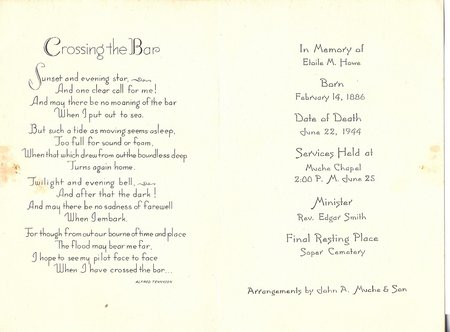 Crossing the Bar
Sunset and evening star,
And one clear call for me!
And may there be no moaning of the bar
When I put out to sea.
But such a tide as moving seems asleep,
Too full for sound or foam,
When that which drew from out the boundless deep
Turns again home.
Twilight and evening bell,
And after that the dark!
And may there be no sadness of farewell
When I embark.
For though from out our bourne of time and place
The flood may bear me far,
I hope to see my pilot face to face
When I have crossed the bar...
ALFRED TENNYSON
In Memory of
Etoile M. Howe
Born
February 14, 1886
Date of Death
June 22, 1944
Services Held at
Muche Chapel
2:00 P. M. June 25
Minister
Rev. Edgar Smith
Final Resting Place
Soper Cemetery
Arrangements by John A. Muche & Son